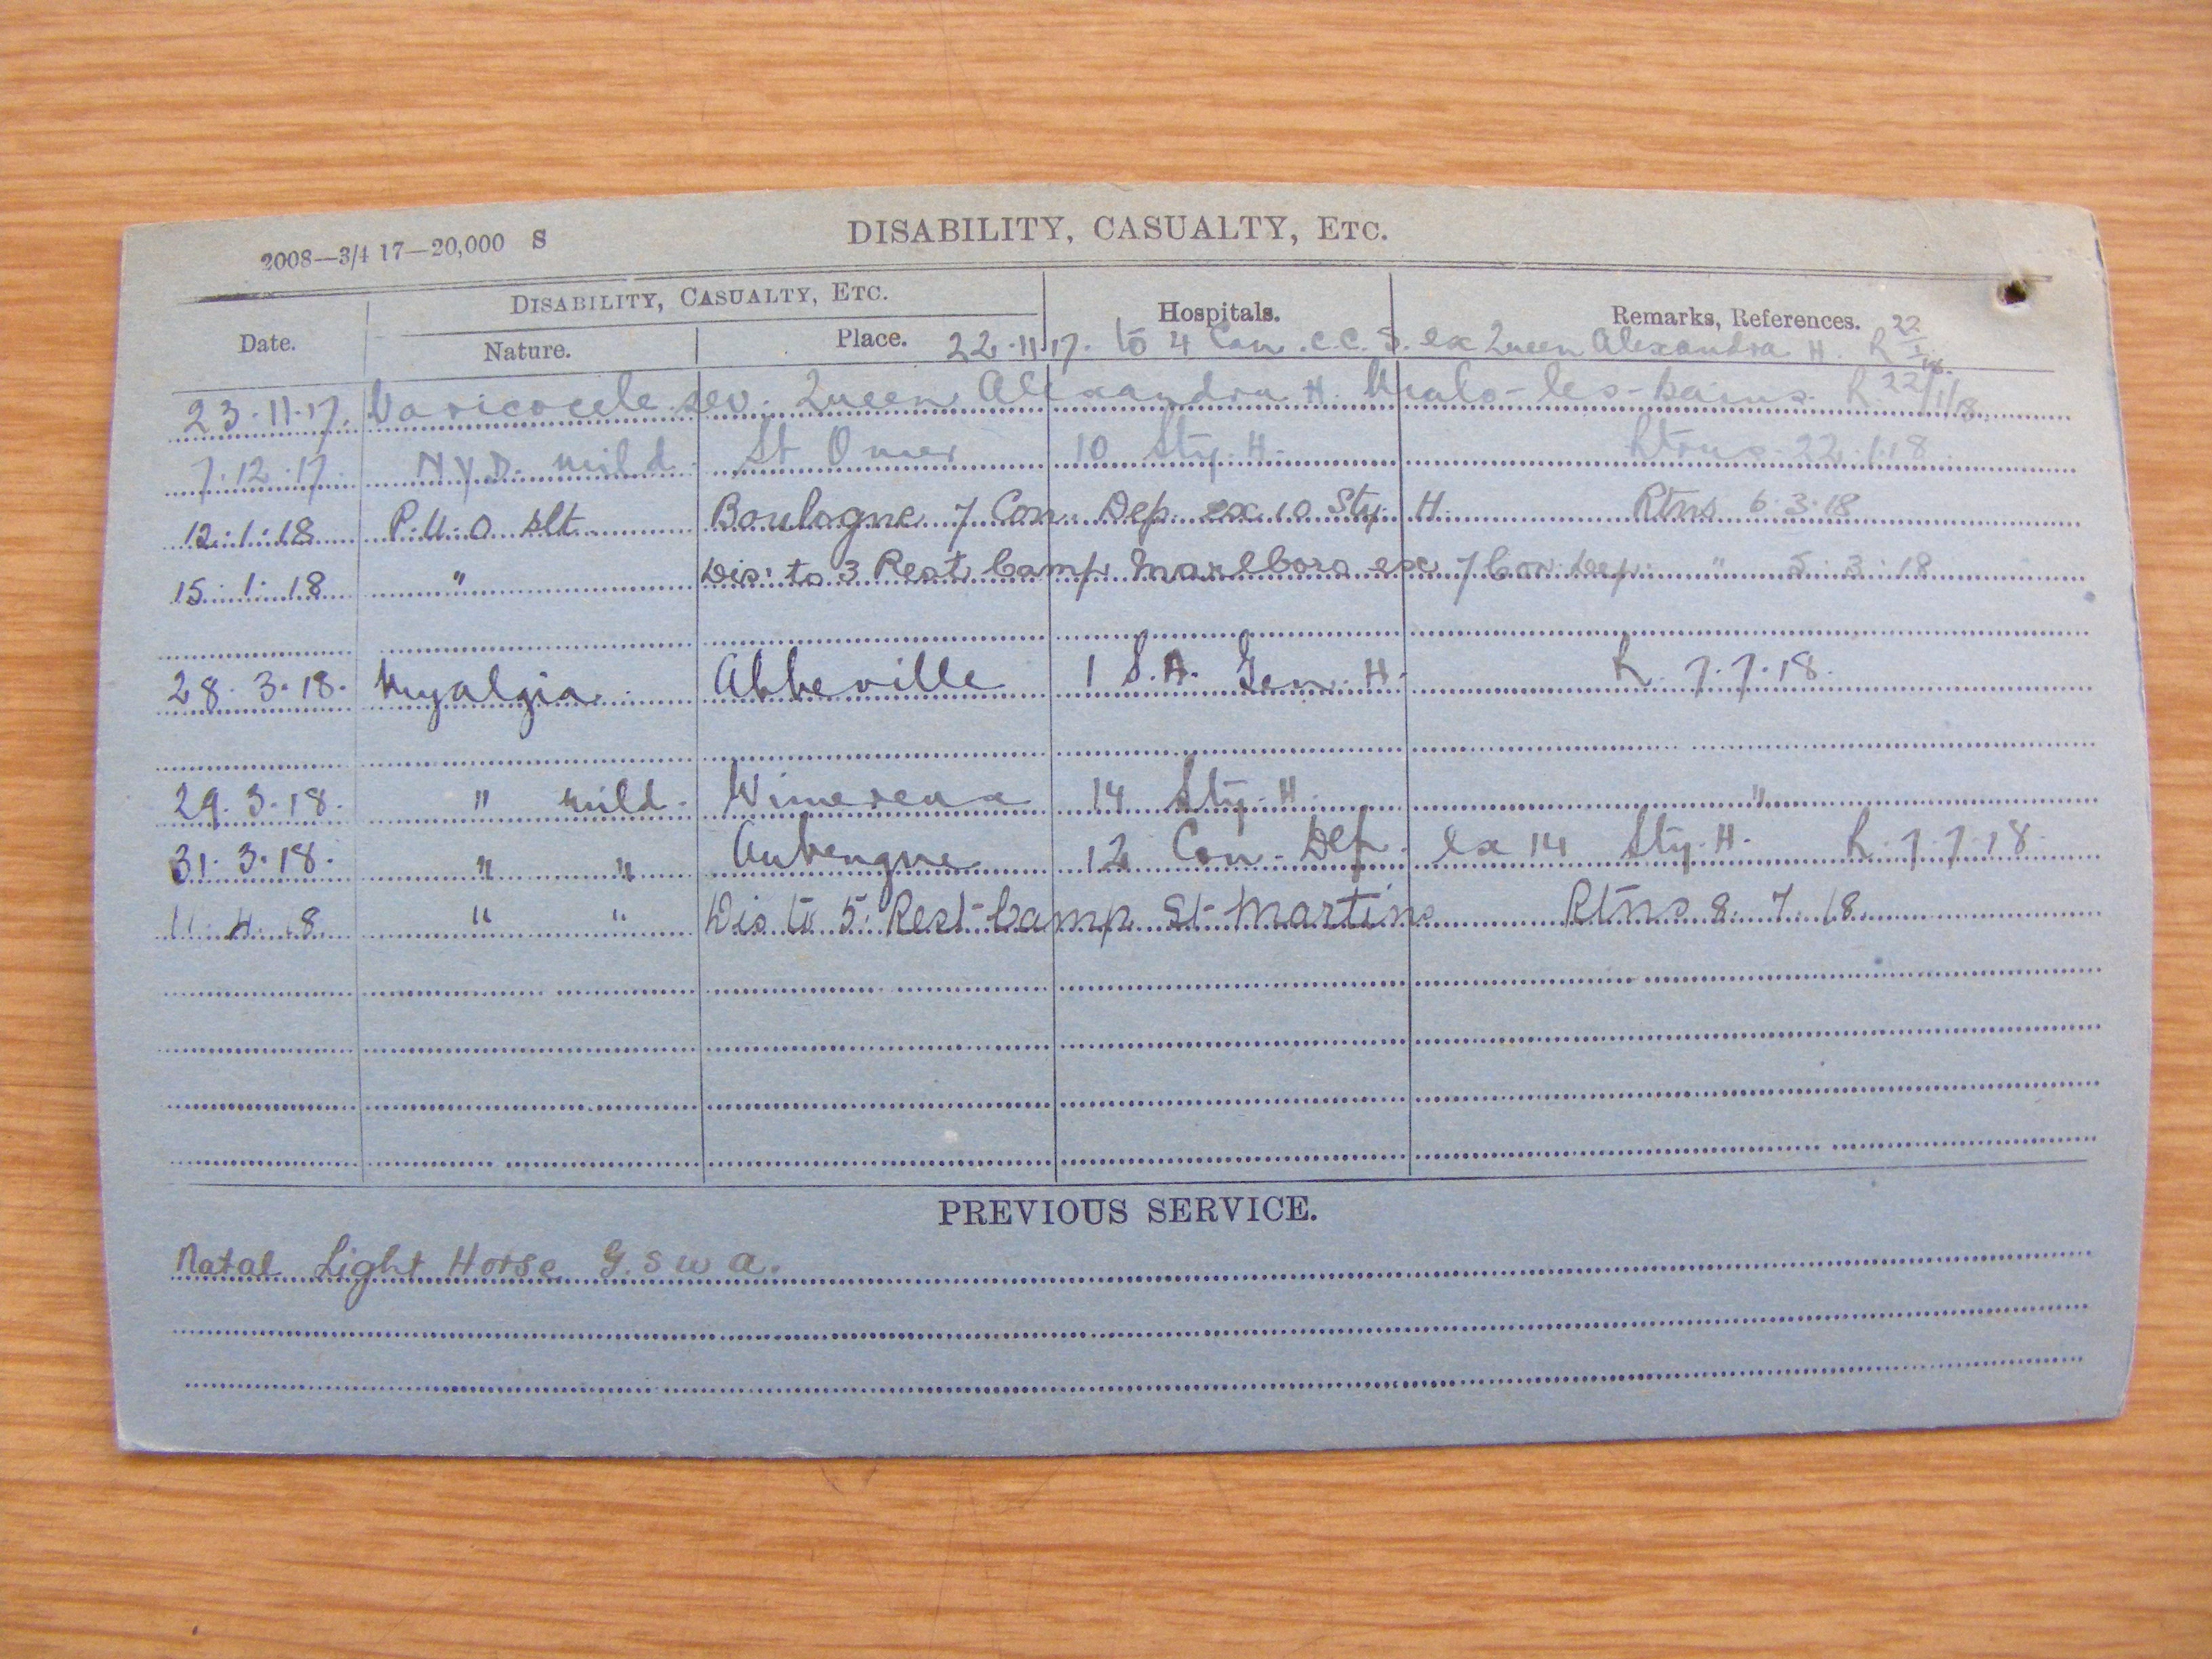 2008—3/4 17—20,000 S
DISABILITY, CASUALTY, ETC.
DISABILITY, CASUALTY, ETC.
Date. Nature. Place. Hospitals. Remarks, References.
22.11.17. to 4 Can. C.C.S. ex Queen Alexandra H. R 22/1/18.
23.11.17. Varicocele sev. Queen Alexandra H. Malo-les-bains. R. 22/1/18.
7.12.17. N.Y.D. mild St Omer 10 Sty. H. Rtrns 22.1.18.
12.1.18 P.U.O slt. Boulogne 7 Con Dep. ex 10 Sty H. Rtns 6.3.18
15.1.18 " Dis: to 3 Rest Camp Marlboro ex 7 Con. Dep: " 5.3.18
28.3.18. Myalgia. Abbeville 1 S.A. Gen. H. R. 7.7.18.
29.3.18. " mild. Wimereux 14 Sty. H. "
31.3.18. " " Aubengue 12 Con. Dep. ex 14 Sty. H. R. 7.7.18.
11.4.18 " " Dis to 5. Rest Camp St Martins Rtns 8.7.18
PREVIOUS SERVICE.
Natal Light Horse G.S.W.A.